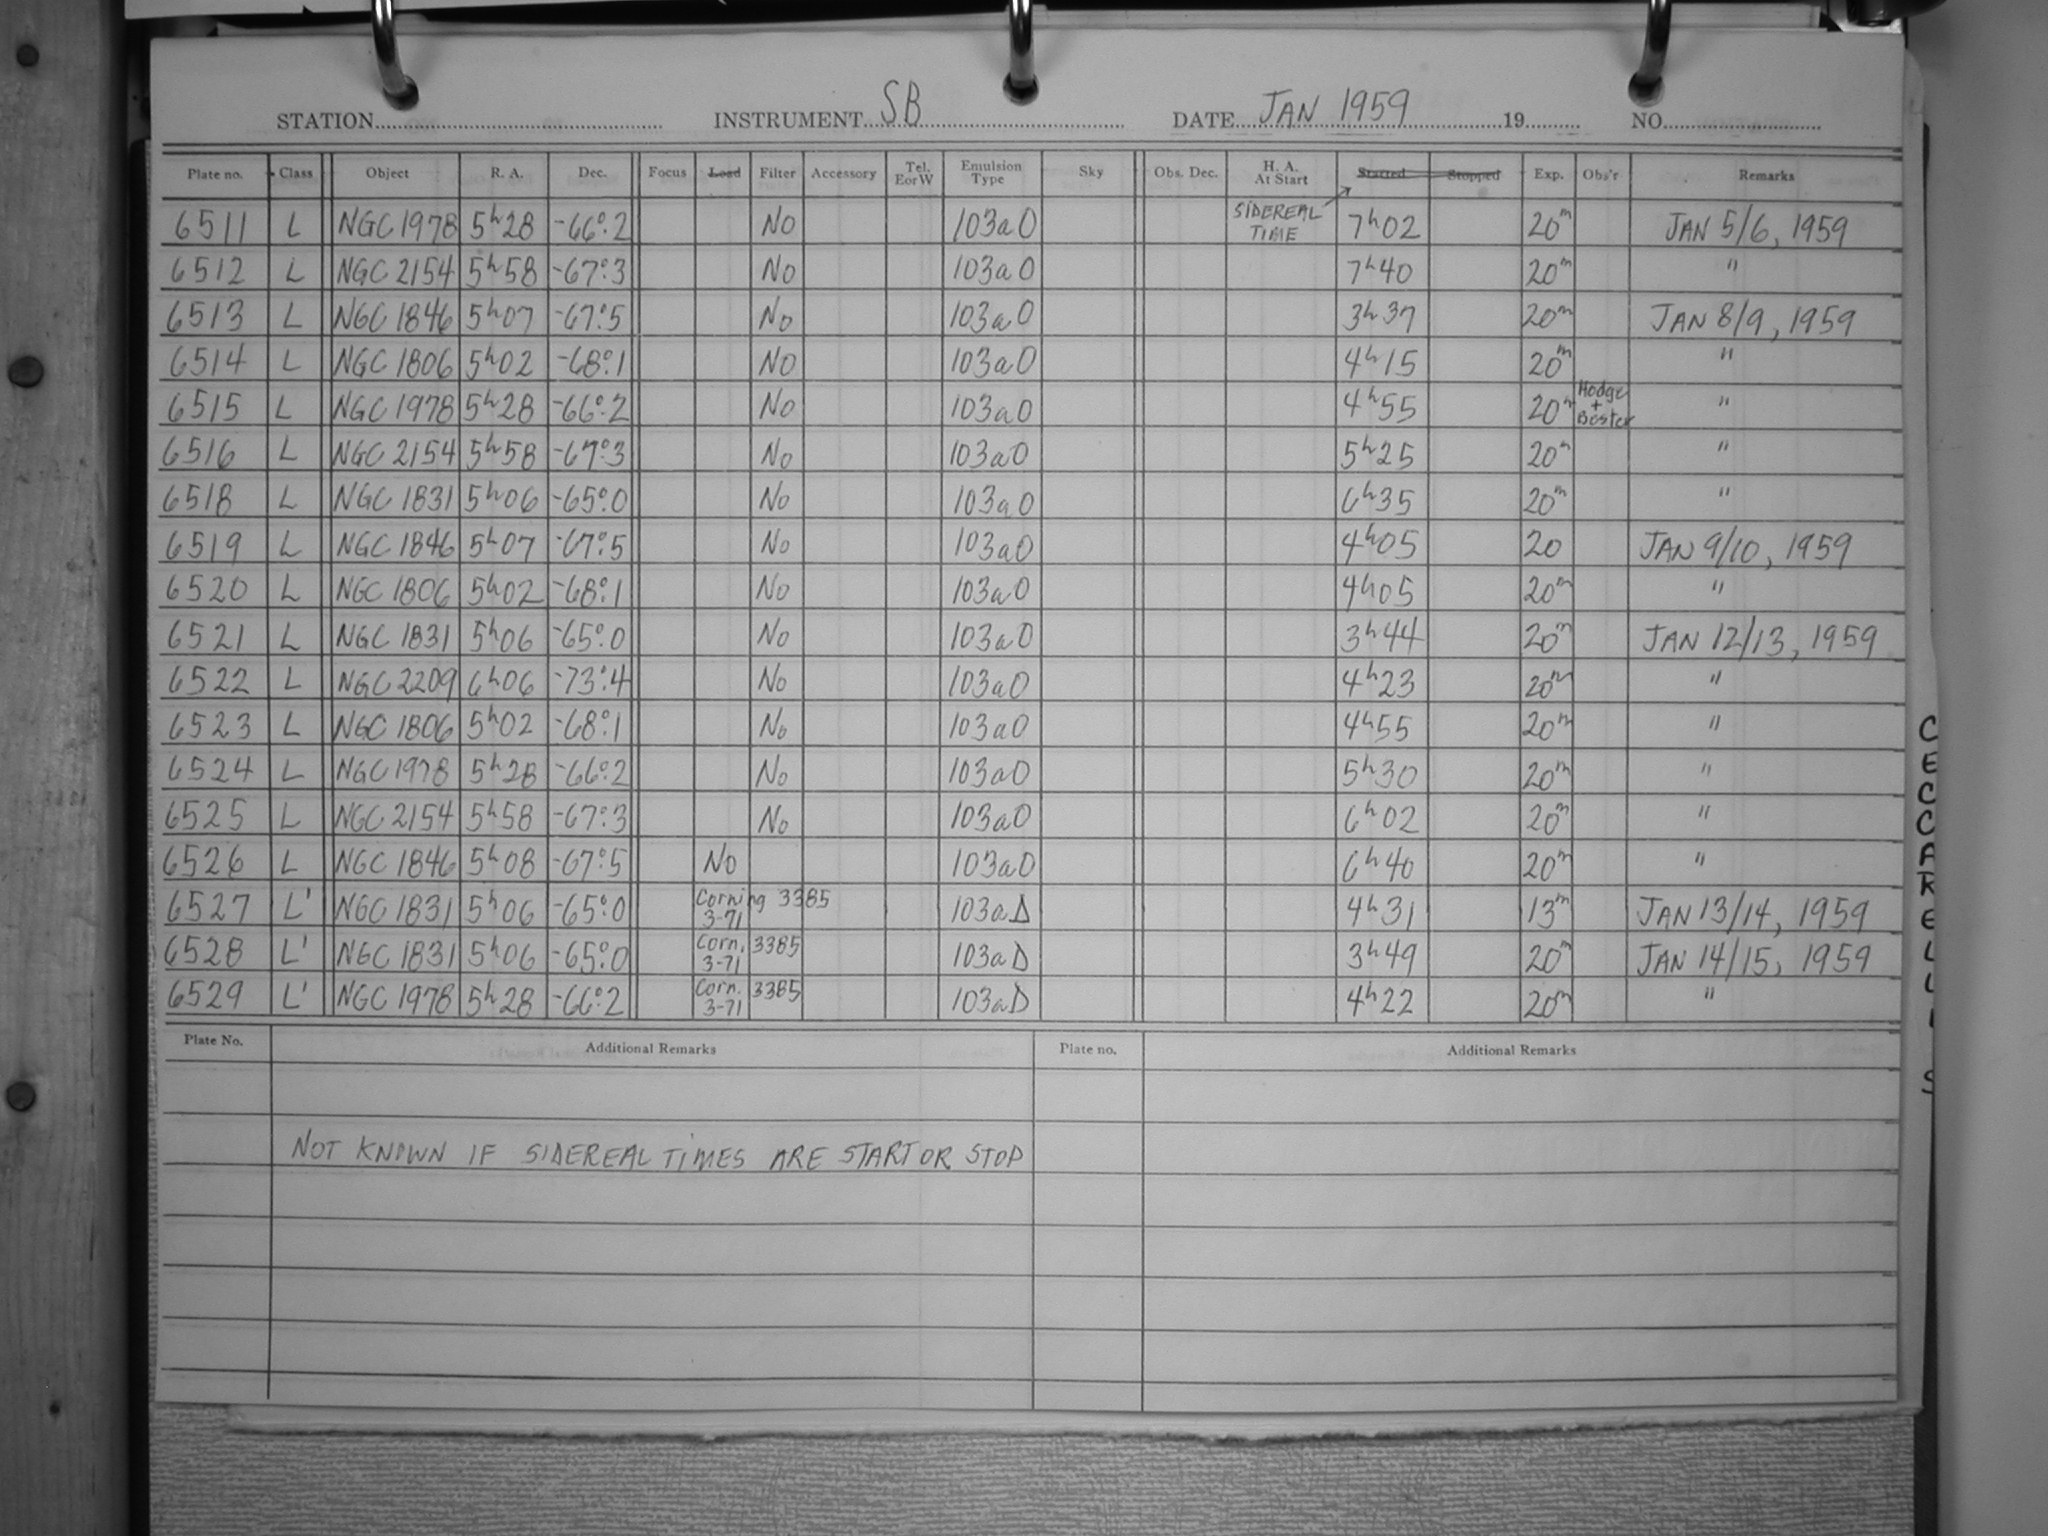 STATION INSTRUMENT SB DATE JAN 1959 19 NO
Plate no. Class Object R. A. Dec. Focus Load Filter Accessory Tel. E or W Emulsion Type Sky Obs. Dec. H. A. At Start Started Stopped Exp. Obs'r Remarks
SIDEREAL TIME
6511 L NGC 1978 5h28 -66°.2 No 103aO 7h02 20m JAN 5/6, 1959
6512 L NGC 2154 5h58 -67°.3 No 103aO 7h40 20m "
6513 L NGC 1846 5h07 -67°.5 No 103aO 3h37 20m JAN 8/9, 1959
6514 L NGC 1806 5h02 -68°.1 No 103aO 4h15 20m "
6515 L NGC 1978 5h28 -66°.2 No 103aO 4h55 20m Hodge + Bester "
6516 L NGC 2154 5h58 -67°.3 No 103aO 5h25 20m "
6518 L NGC 1831 5h06 -65°.0 No 103aO 6h35 20m "
6519 L NGC 1846 5h07 -67°.5 No 103aO 4h05 20 JAN 9/10, 1959
6520 L NGC 1806 5h02 -68°.1 No 103aO 4h05 20m "
6521 L NGC 1831 5h06 -65°.0 No 103aO 3h44 20m JAN 12/13, 1959
6522 L NGC 2209 6h06 -73°.4 No 103aO 4h23 20m "
6523 L NGC 1806 5h02 -68°.1 No 103aO 4h55 20m "
6524 L NGC 1978 5h28 -66°.2 No 103aO 5h30 20m "
6525 L NGC 2154 5h58 -67°.3 No 103aO 6h02 20m "
6526 L NGC 1846 5h08 -67°.5 No 103aO 6h40 20m "
6527 L' NGC 1831 5h06 -65°.0 Corning 3385 3-71 103aD 4h31 13m JAN 13/14, 1959
6528 L' NGC 1831 5h06 -65°.0 Corn. 3385 3-71 103aD 3h49 20m JAN 14/15, 1959
6529 L' NGC 1978 5h28 -66°.2 Corn. 3385 3-71 103aD 4h22 20m "
Plate No. Additional Remarks Plate no. Additional Remarks
NOT KNOWN IF SIDEREAL TIMES ARE START OR STOP